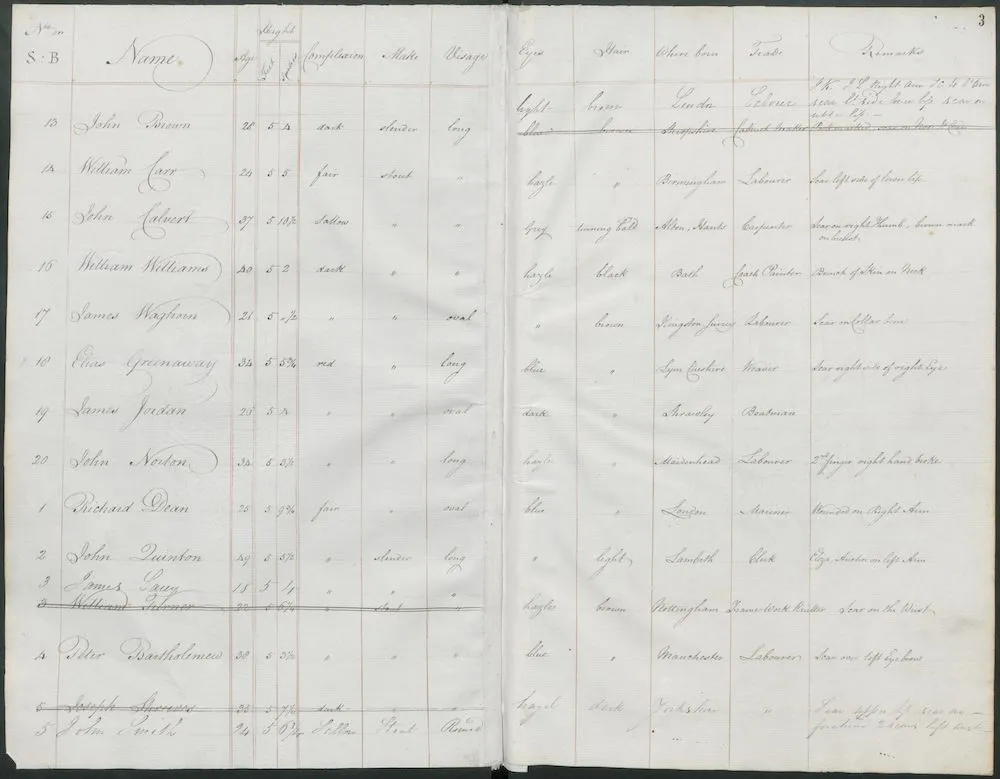 3
No. in
S : B Name Age Height Complexion Make Visage Eyes Hair Where born Trade Remarks
Feet
light brown London
13 John Brown 28 5 4 dark slender long blue brown Shropshire Cabinet Maker
14 William Carr 24 5 5 fair stout " hazle " Birmingham Labourer Scar left side of lower lip
15 John Calvert 37 5 10½ sallow " " Grey turning bald Alton, Hants Carpenter Scar on right Thumb, brown mark
on breast
16 William Williams 40 5 2 dark " " hazle black Bath Coach Painter Bunch of Skin on Neck
17 James Waghorn 21 5 " " oval " brown Kingston, Surrey Labourer Scar on Collar bone
18 Elias Greenaway 34 5 red " long blue " Lym Cheshire Weaver Scar right side of right Eye
19 James Jordan 25 5 4 " " oval dark " Boatman
20 John Norton 34 5 " " long hazle " Maidenhead Labourer 2nd finger right hand broke
1 Richard Dean 25 5 fair " oval blue " London Mariner Wounded on Right Arm
2 John Quinton 49 5 5½ " slender long " light Lambeth Clerk Eliza Austin on left Arm
3 James 18 5 " " "
3 William 5 " stout " hazle brown Nottingham Frame Work Knitter Scar on the Wrist
4 Peter Bartholemew 38 5 3½ " " " blue " Manchester Labourer Scar over left Eyebrow
5 Joseph 5 7½ dark " " hazel dark Yorkshire "
5 John Smith 24 5 Sallow Stout Round